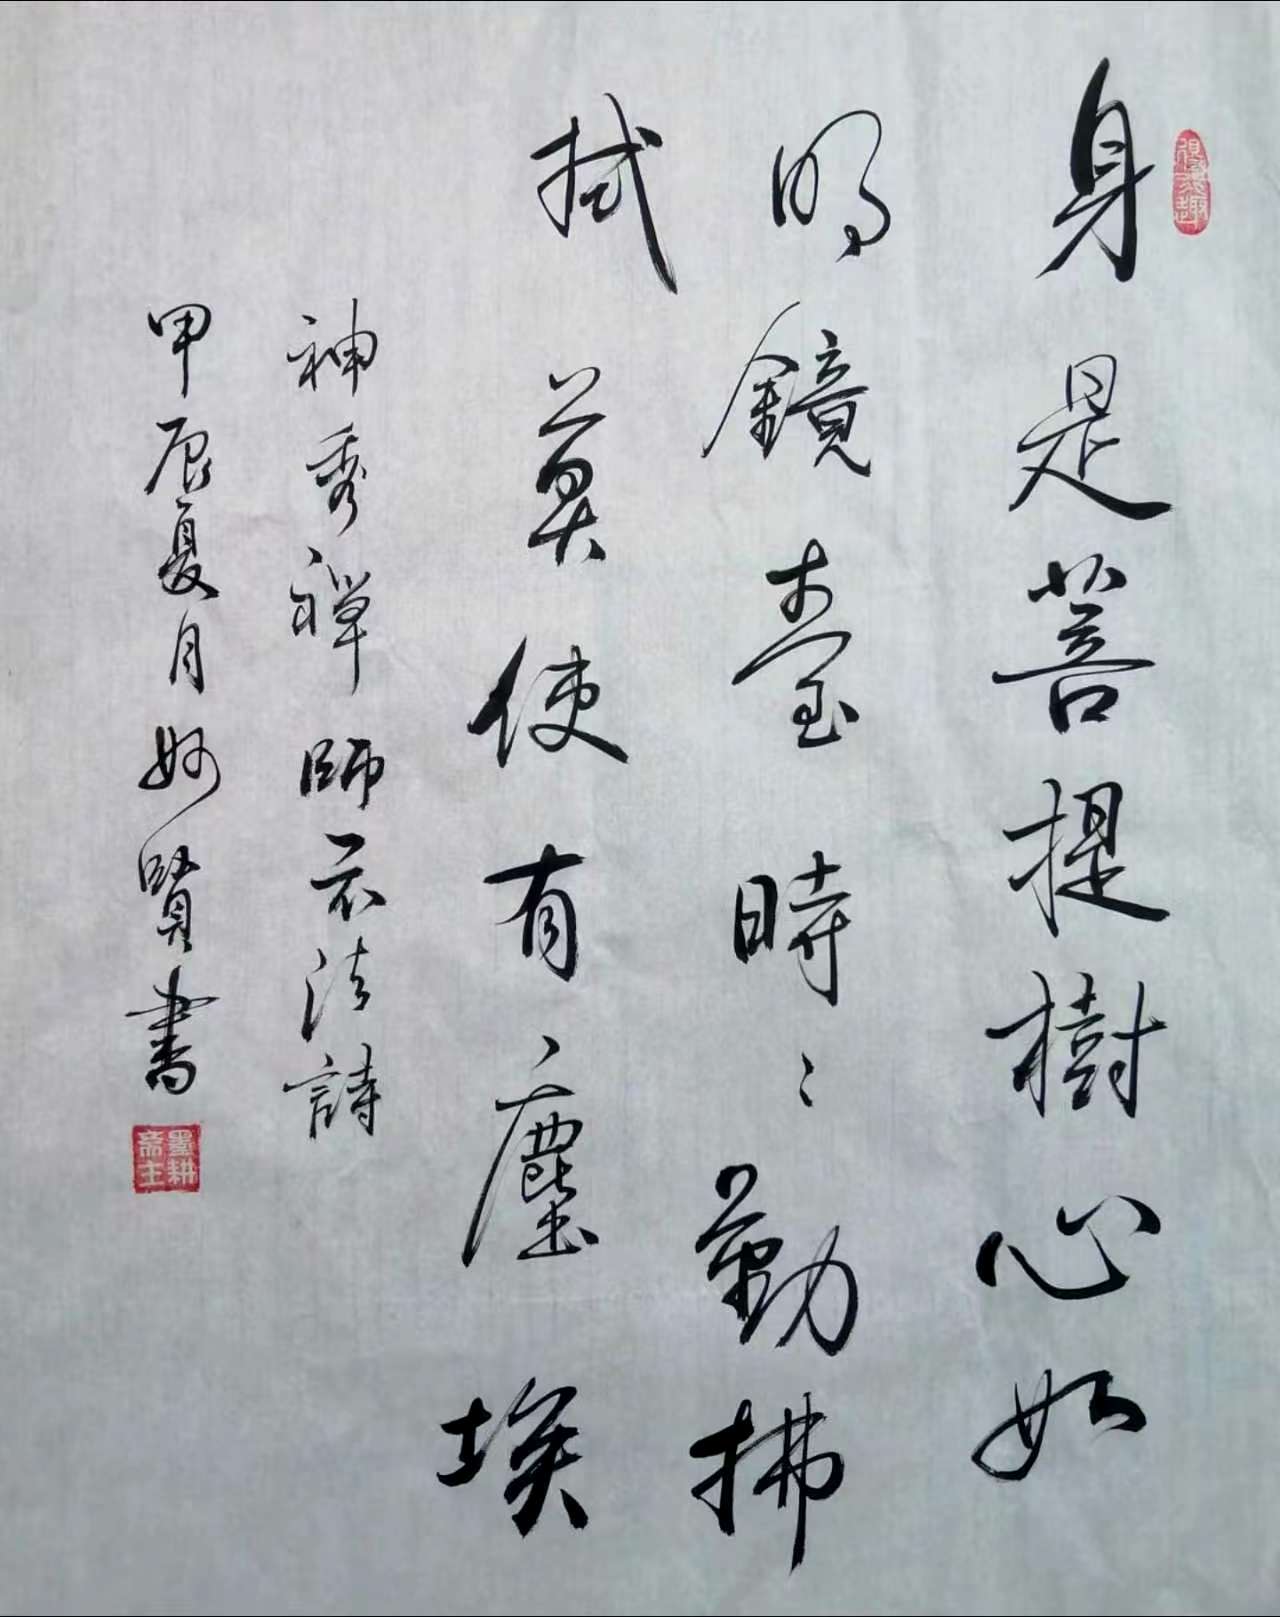 身是菩提樹心如
明鏡臺時〻勤拂
拭莫使有塵埃
神秀禪師示法詩
甲辰夏月妙賢書
墨耕齋主